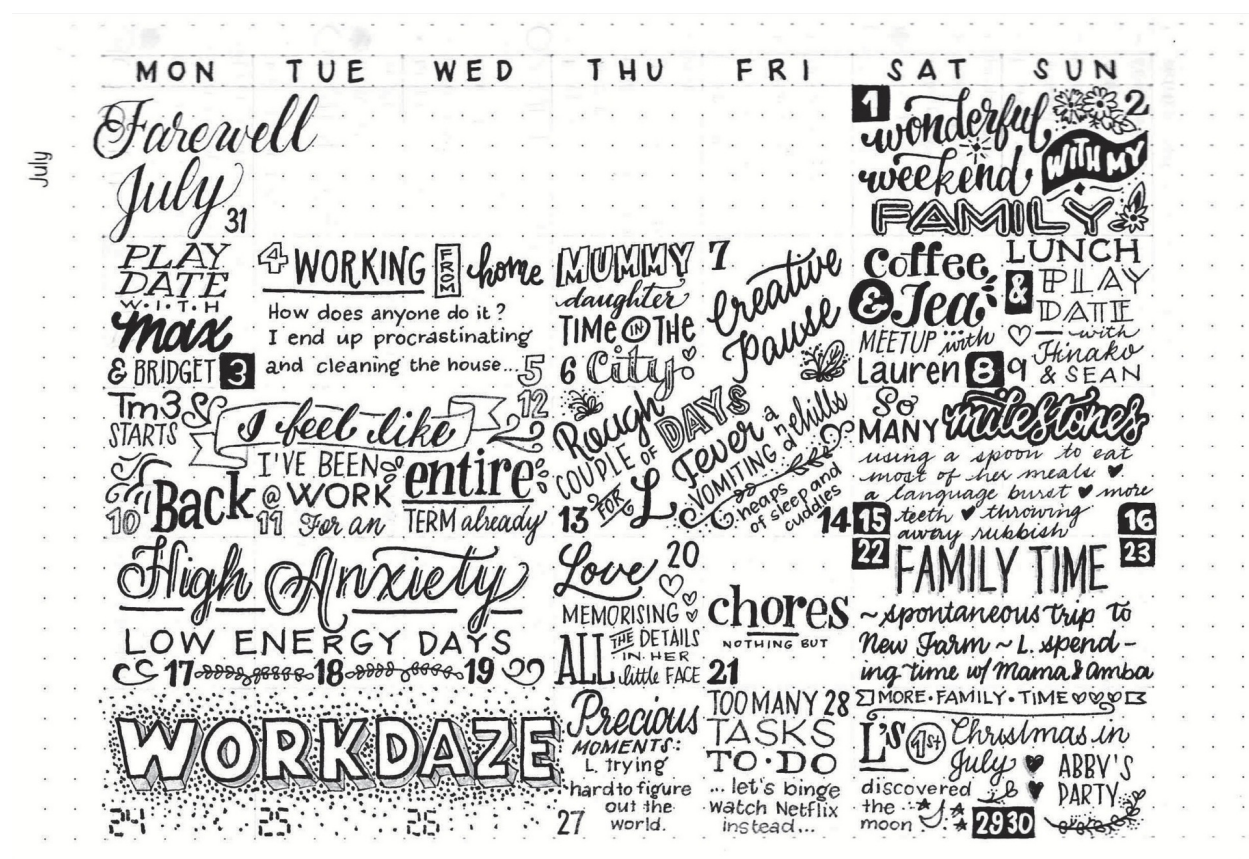 MON TUE WED THU FRI SAT SUN
July
Farewell
July
31
1
wonderful
2
weekend
WITH MY
FAMILY
PLAY
DATE
W•I•T•H
max
& BRIDGET 3
4 WORKING FROM home
How does anyone do it?
I end up procrastinating
and cleaning the house... 5
MUMMY
daughter
TIME IN THE
6 City
7
Creative
Pause
Coffee
& Tea
MEETUP with
Lauren 8
LUNCH
& PLAY
DATE
with
9 Hinako
& SEAN
Tm3
STARTS
10
I feel like
12
Back
11
I'VE BEEN
@ WORK
For an
entire
TERM already
Rough
COUPLE OF
DAYS
13 FOR L
Fever and chills
VOMITING
heaps
of sleep and
cuddles
14
So
MANY milestones
using a spoon to eat
most of her meals ♥
a language burst ♥ more
15 teeth ♥ throwing 16
away rubbish
High Anxiety
LOW ENERGY DAYS
17 18 19
Love 20
MEMORISING
ALL THE DETAILS
IN HER
little FACE
chores
NOTHING BUT
21
22 FAMILY TIME 23
~ spontaneous trip to
New Farm ~ L. spend-
ing time w/ Mama & Amba
WORKDAZE
24 25 26
Precious
MOMENTS:
L. trying
hard to figure
out the
27 world.
TOO MANY 28
TASKS
TO•DO
... let's binge
watch Netflix
instead...
MORE•FAMILY•TIME
L'S 1st Christmas in
July
discovered
the
moon
♥ ABBY'S
♥ PARTY
29 30